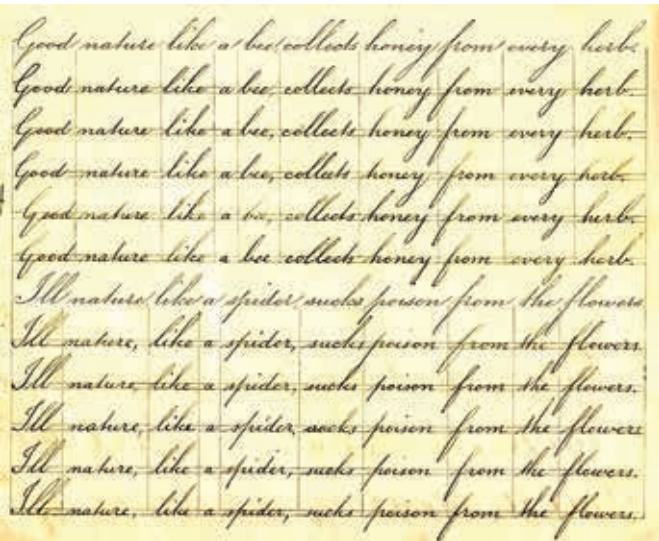 Good nature like a bee collects honey from every herb.
Good nature like a bee, collects honey from every herb.
Good nature like a bee, collects honey from every herb.
Good nature like a bee, collects honey from every herb.
Good nature like a bee, collects honey from every herb.
Good nature like a bee collects honey from every herb.
Ill nature, like a spider, sucks poison from the flowers
Ill nature, like a spider, sucks poison from the flowers.
Ill nature, like a spider, sucks poison from the flowers.
Ill nature, like a spider, socks poison from the flowers
Ill nature, like a spider, sucks poison from the flowers.
Ill nature, like a spider, sucks poison from the flowers.